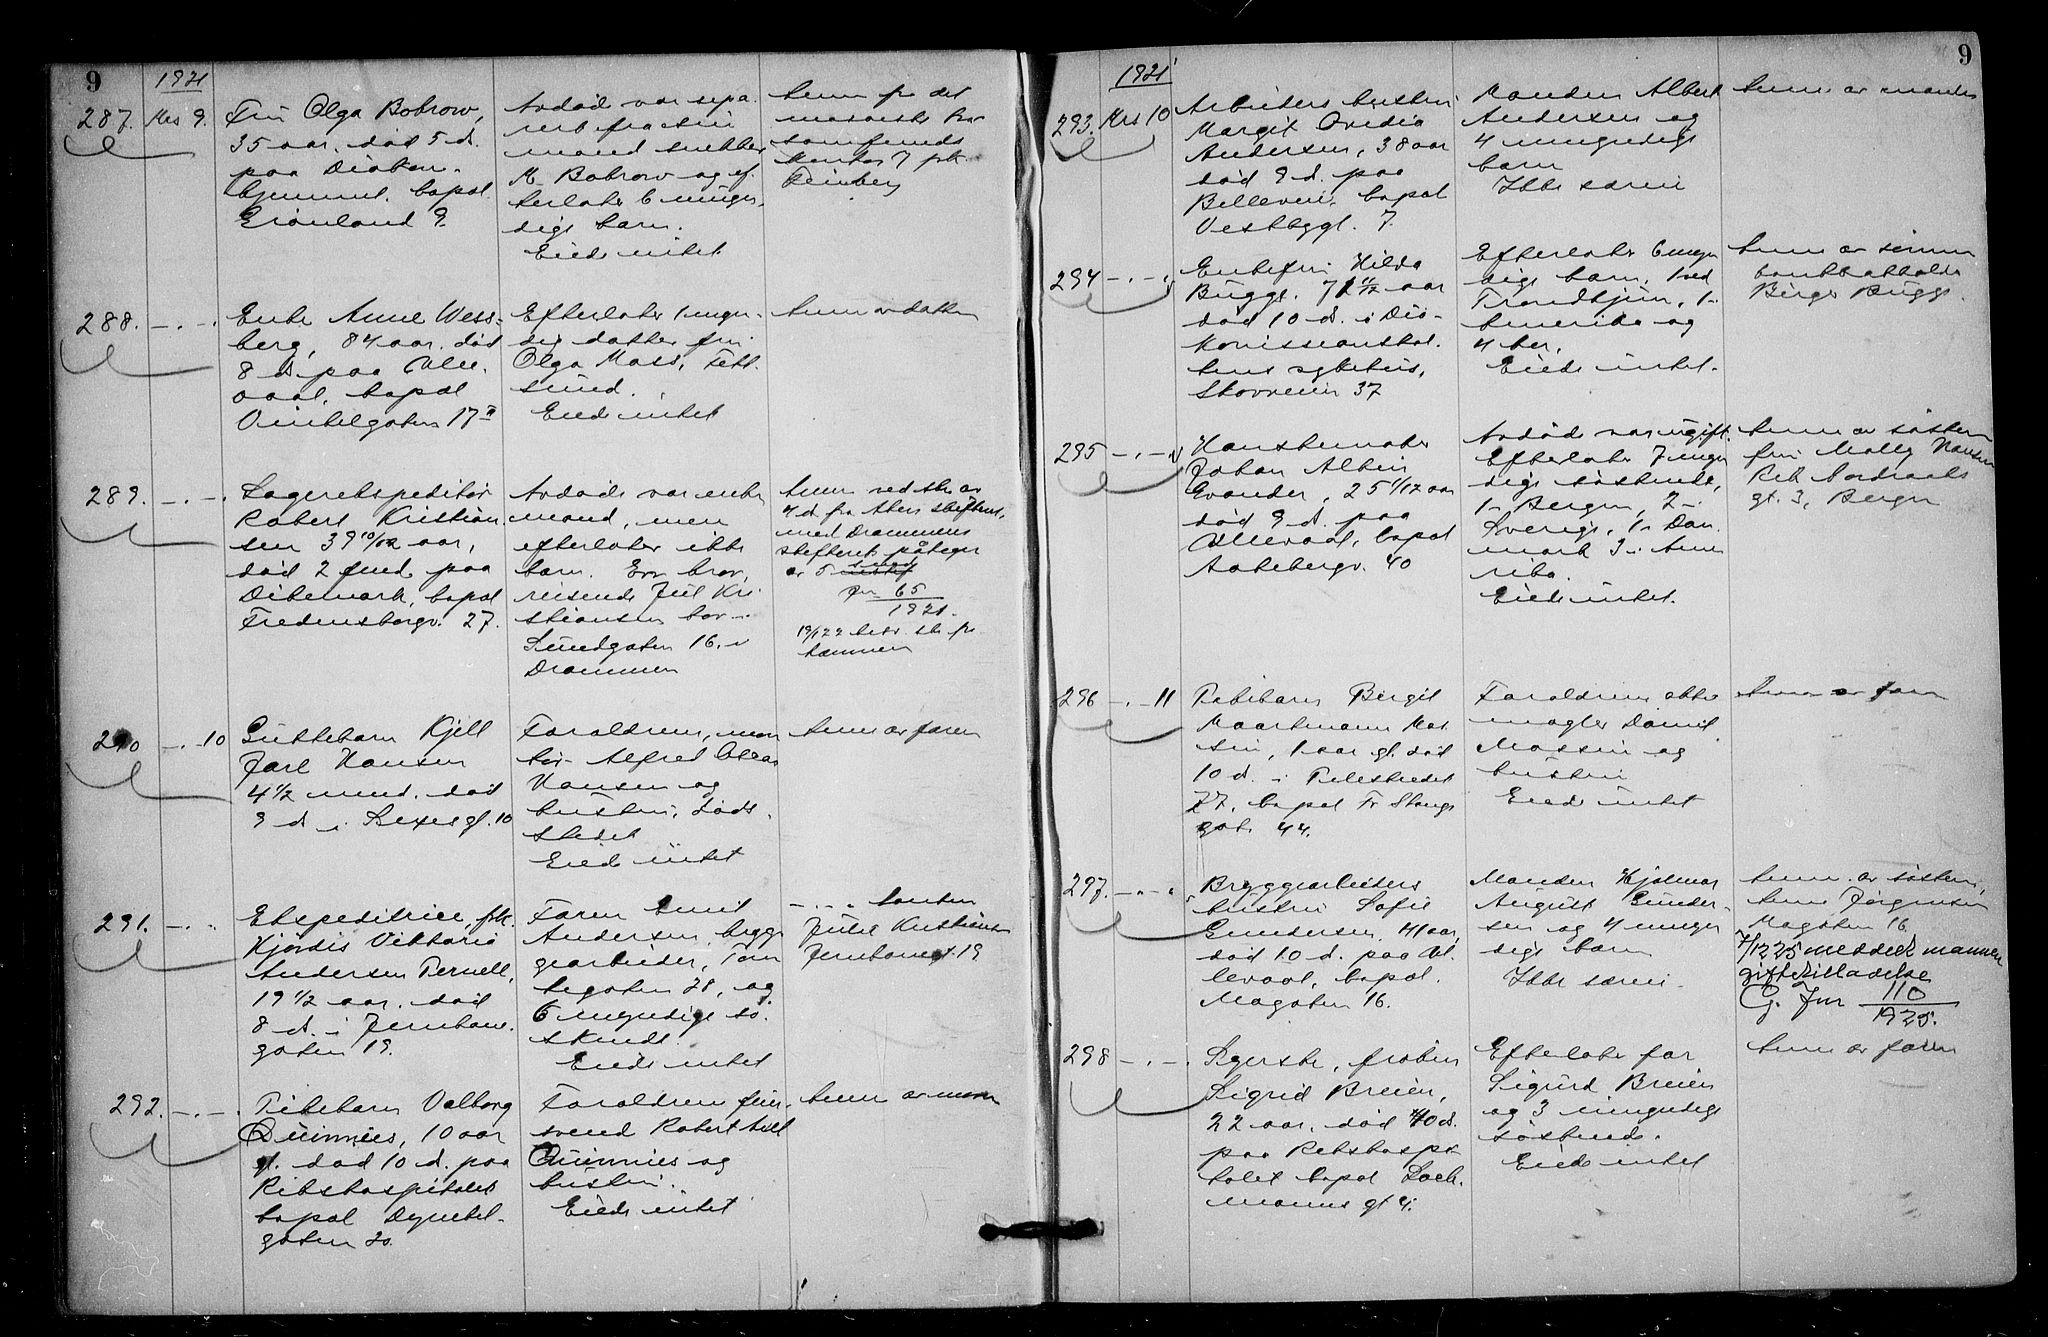 9
1921
287.
Mrs 9.
Fru Olga Bobrow,
35 aar, død 5 d.
paa Diakon-
hjemmet. bopæl
Grønland 9.
Avdøde var sepa-
rert fra sin
mand snekker
M. Bobrow og ef-
terlater 6 myn-
dige barn.
Eiede intet
Anm fra det
mosaiske
samfunds
kontor 7
288.
Enke Anne Wess-
berg, 84 aar. død
8 d. paa Ulle-
vaal, bopæl
Vinkelgaten 17 II
Efterlater 1 myn-
dig datter fru
Olga Moss, Fett-
sund.
Eiede intet
Anm av datter
289.
Lagerekspeditør
Robert Kristian-
sen 39 10/12 aar,
død 2 ds. paa
Dikemark, bopæl
Fredensborgv. 27.
Avdøde var enke-
mand, men
efterlater ikke
barn. En bror,
reisende Jul Kri-
stiansen bor i
Sundgaten 16. i
Drammen
Anm ved skr. av
4 d. fra Akers skifteret,
med Drammens
skifteret påtegn
av 5
Jnr 65
1921.
Drammen
290
10
Guttebarn Kjell
Jarl Hansen
4 1/2 mnd. død
9 d. i Sexesgt. 10
Forældrene, mon-
tør Alfred
Hansen og
hustru, døds-
stedet
Eiede intet
Anm av faren
291.
Ekspeditrice, frk.
Hjørdis Viktoria
Andersen Pernell,
19 1/2 aar. død
8 d. i Jernbane-
gaten 19.
Faren Emil
Andersen, brygge-
riarbeider, Tom-
tegaten 28, og
6 myndige sø-
skende
Eiede intet
tanten
Julie Kristiansen
Jernbanegt. 19
292.
Pikebarn Valborg
Quinnies, 10 aar
gl. død 10 d. paa
Rikshospitalet
bopæl Dynekil-
gaten 20.
Forældrene
svend Robert
Quinnies og
hustru.
Eiede intet
Anm av moren
9
1921
293.
Mrs 10
Arbeiders hustru
Margit Ovidia
Andersen, 38 aar
død 9 d. paa
Bellevue, bopæl
Vestbygt. 7.
Manden Albert
Andersen og
4 umyndige
barn
Ikke særeie
Anm. av manden
294
Enkefru Hilda
Bugge. 71 11/12 aar
død 10 d. i Dia-
konisseanstal-
tens sykehus,
Skovveien 37
Efterlater 6 myn-
dige barn, 1 ved
Trondhjem, 1 i
Amerika og
4 her.
Eiede intet.
Anm av sønnen
bankbokholder
Birger Bugge.
295
Kunstmaler
Johan Albin
Evander, 25 1/12 aar
død 9 d. paa
Ullevaal, bopæl
Aakebergv. 40
Avdøde var ugift.
Efterlater 7 myn-
dige søskende,
1 i Bergen, 2 i
Sverige, 1 i Dan-
mark 3 i Ame-
rika.
Eiede intet.
Anm av søsteren
fru Molly Hansen
Rik Nordraaks
gt. 3, Bergen
296
11
Pikebarn Birgit
Maartmann
1 aar gl. død
10 d. i Pilestrædet
77, bopæl Fr Stangs
gate 44.
Forældrene skibs-
mægler
og
hustru
Eiede intet
Anm av faren
297.
Bryggearbeiders
hustru Sofie
Gundersen, 41 aar,
død 10 d. paa Ul-
levaal, bopæl
Magaten 16.
Manden Hjalmar
August Gunder-
sen og 4 umyn-
dige barn
Ikke særeie.
Anm. av søsteren,
Anna Jørgensen
Magaten 16
7/12 25 meddelt mannen
giftetilladelse
G. Jnr 110
1925.
298
Sykerske, frøken
Sigrid Breien,
22 aar, død 10 d.
paa Rikshospi-
talet bopæl Loch-
manns gt 4.
Efterlater far
Sigurd Breien
og 3 umyndige
søskende.
Eiede intet
Anm av faren